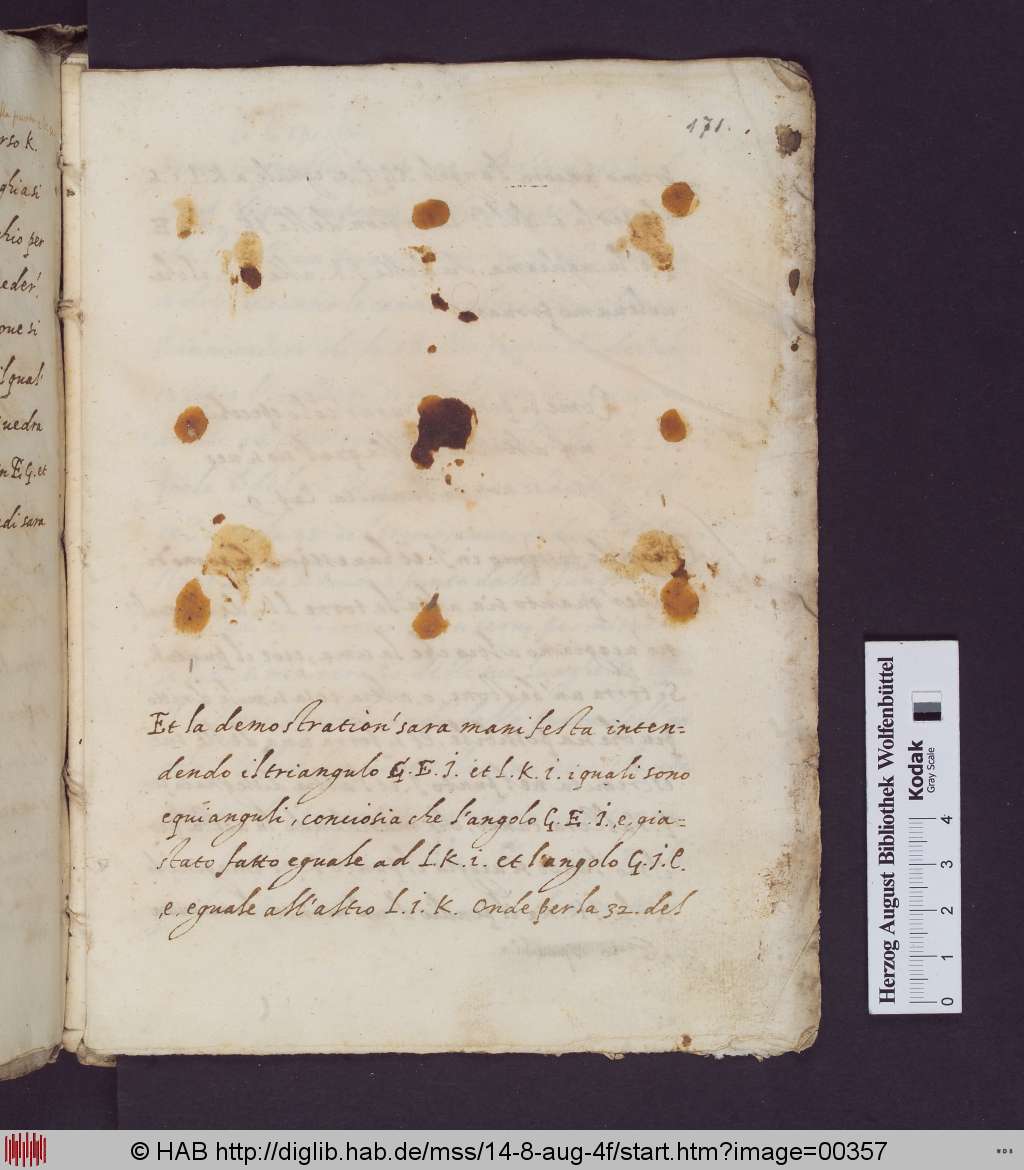 rso K.
ghiasi
chio per
eder'.
oue si
il qual'
uedra
in E.G. et
di sara
171.
Et la demostration' sara manifesta inten=
dendo il triangulo G.E.I. et L.K.i. i quali sono
equianguli, conciosia che l'angolo G.E.I. e, gia=
stato fatto eguale ad L.K.i. et l'angolo G.I.E.
,e, eguale all'altro L.I.K. Onde per la 32. del
Herzog August Bibliothek Wolfenbüttel
Kodak
Gray Scale
0 1 2 3 4
© HAB http://diglib.hab.de/mss/14-8-aug-4f/start.htm?image=00357